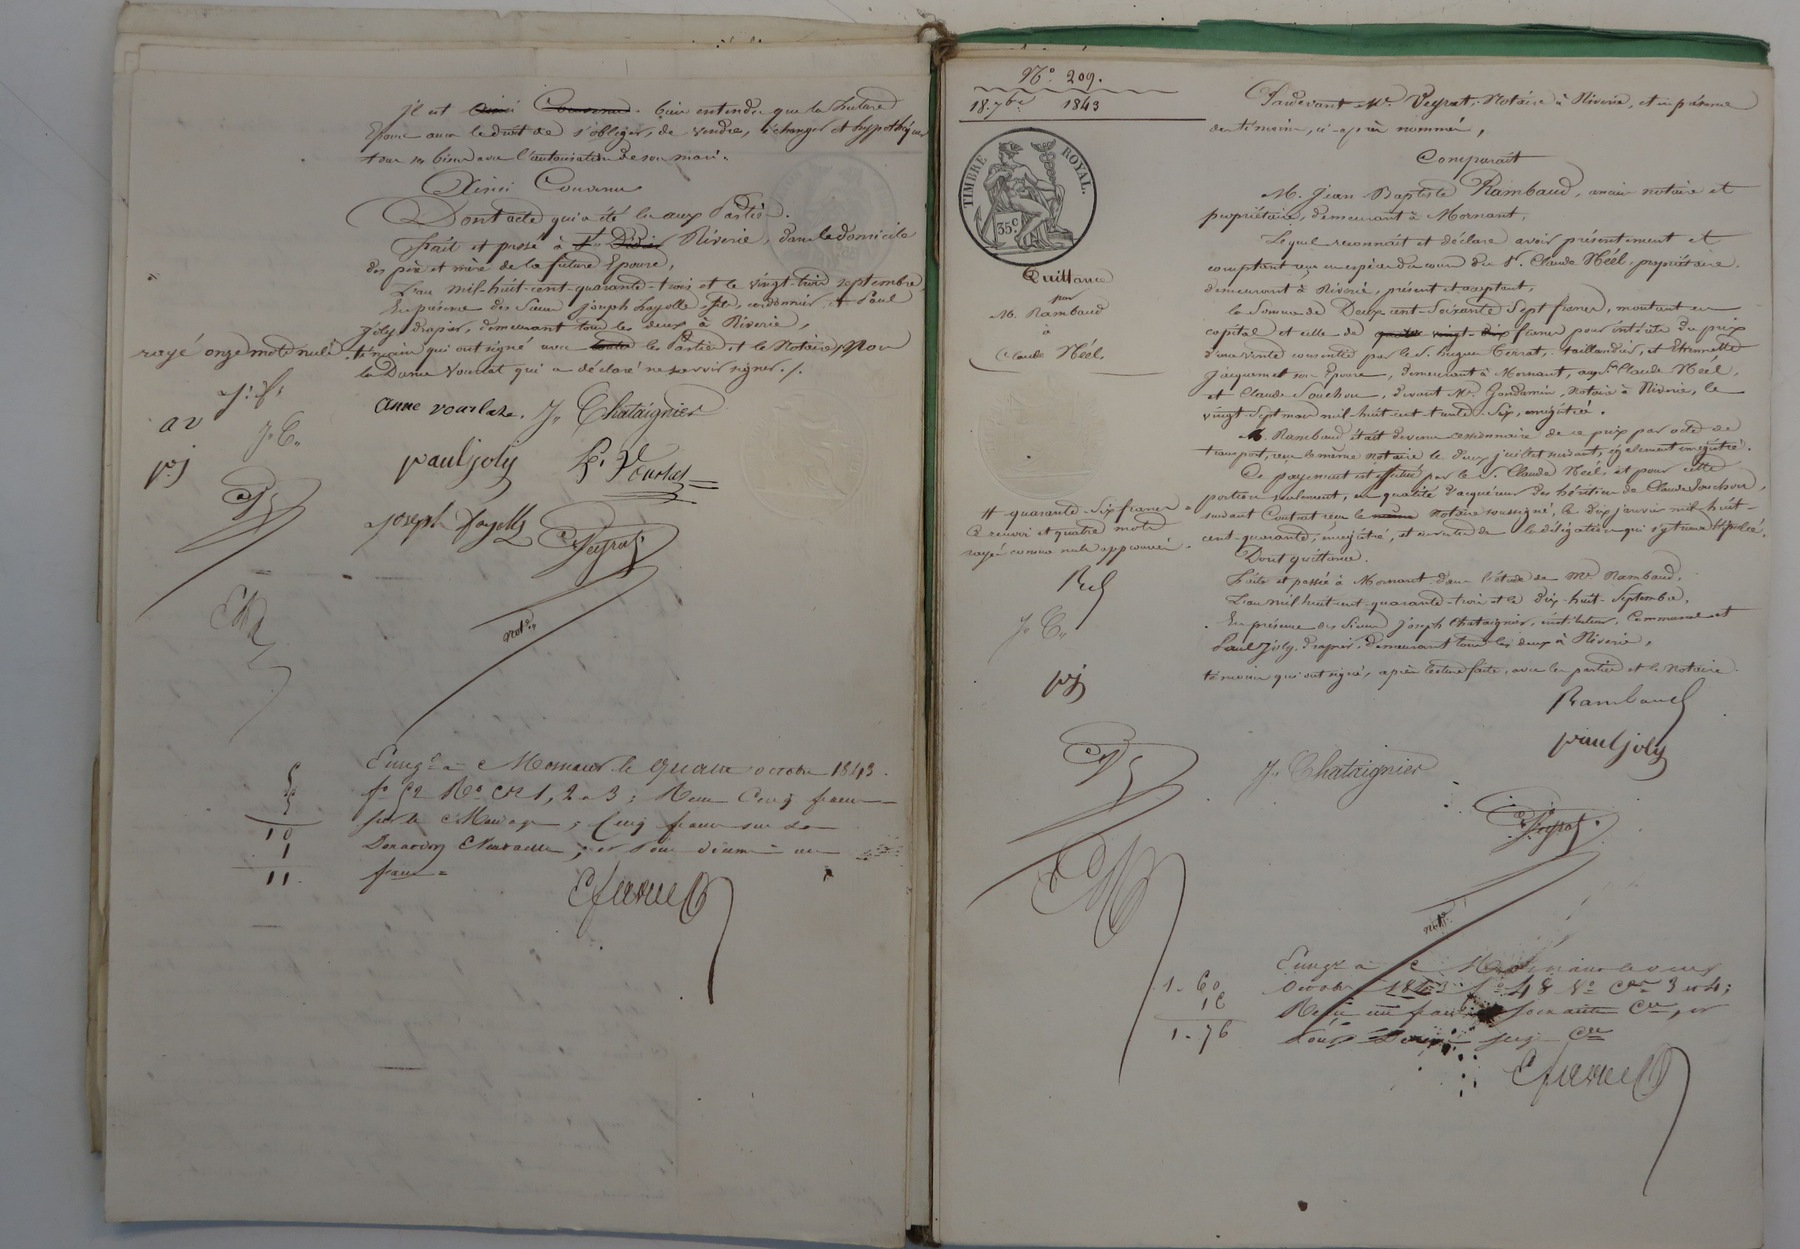 il est ainsi Convenu. bien entendu que la future
Epouse aura le droit de s'obliger, de vendre, échanger et hypothéquer
tous ses biens avec l'autorisation de son mari.
Ainsi Convenu
Dont acte qui a été lu aux Parties.
fait et passé à St Didier Riverie, dans le domicile
des père et mère de la future Epouse,
L'an mil-huit-cent-quarante-trois et le vingt-trois septembre
En présence des Sieurs joseph fayolle fils, cordonnier, et Paul
Joly drapier, demeurant tous les deux à Riverie,
témoins qui ont signé avec toutes les Parties et le Notaire, Non
la Dame Vourlat qui a déclaré ne savoir signer./.
rayé onze mots nuls
j. f.
av
J. C.
pj
anne vourlat. J. Chataignier
paul joly
joseph fayolle
Peyrat
not.
Enregé à Mornant le quatre octobre 1843.
fo 52 Ro Ces 1, 2 et 3; Reçu Cinq francs
pour le Mariage; Cinq francs sur la
Donation; et pour décime un
franc
5
5
10
1
11.
No 209.
18. 7bre 1843
TIMBRE ROYAL.
35c
Quittance
par
M. Rambaud
à
Claude Néél.
Pardevant Me Peyrat, Notaire à Riverie, et en présence
des témoins, ci-après nommés,
Comparaît
M. Jean Baptiste Rambaud, ancien notaire et
propriétaire, demeurant à Mornant,
Lequel reconnaît et déclare avoir présentement et
comptant reçu en espèces du cours du Sr. Claude Néél, propriétaire
demeurant à Riverie, présent et acceptant,
la Somme de Deux-cent-Soixante Sept francs, montant en
capital et celle de quatre vingt-dix francs pour intérêts du prix
d'une vente consentie par le Sr. hugues Terrat, taillandier, et Etiennette
Jacquemet son Epouse, demeurant à Mornant, aux Srs Claude Néél,
et Claude Souchon, devant Me. Gondamin, Notaire à Riverie, le
vingt-Sept mars mil-huit-cent-trente-Six, enregistré.
M. Rambaud était devenu cessionnaire de ce prix par acte de
transport, reçu le même notaire le deux juillet suivant, également enregistré.
Ce payement est effectué par le Sr. Claude Néél, et pour cette
portion seulement, en qualité d'acquéreur des héritiers de Claude Souchon,
suivant Contrat reçu le même Notaire soussigné, le dix janvier mil-huit-
cent-quarante, enregistré, et en vertu de la délégation qui s'y trouve stipulée.
Dont quittance.
Faite et passée à Mornant dans l'étude de Me Rambaud,
L'an mil huit-cent-quarante-trois et le dix-huit-Septembre,
En présence des Sieurs joseph Chataignier, instituteur Communal et
Paul Joly, drapier, demeurant tous les deux à Riverie,
témoins qui ont signé, après lecture faite, avec les parties et le Notaire.
# quarante-Six francs
Ce renvoi et quatre mots
rayés comme nuls approuvés.
J. C.
pj
Rambaud
paul joly
J. Chataignier
Peyrat
not.
Enregé à Mornant le deux
Octobre 1843 fo 48 Vo Ces 3 et 4;
Reçu un franc soixante Ces, et
pour Décime seize Ces
1-60
16
1-76